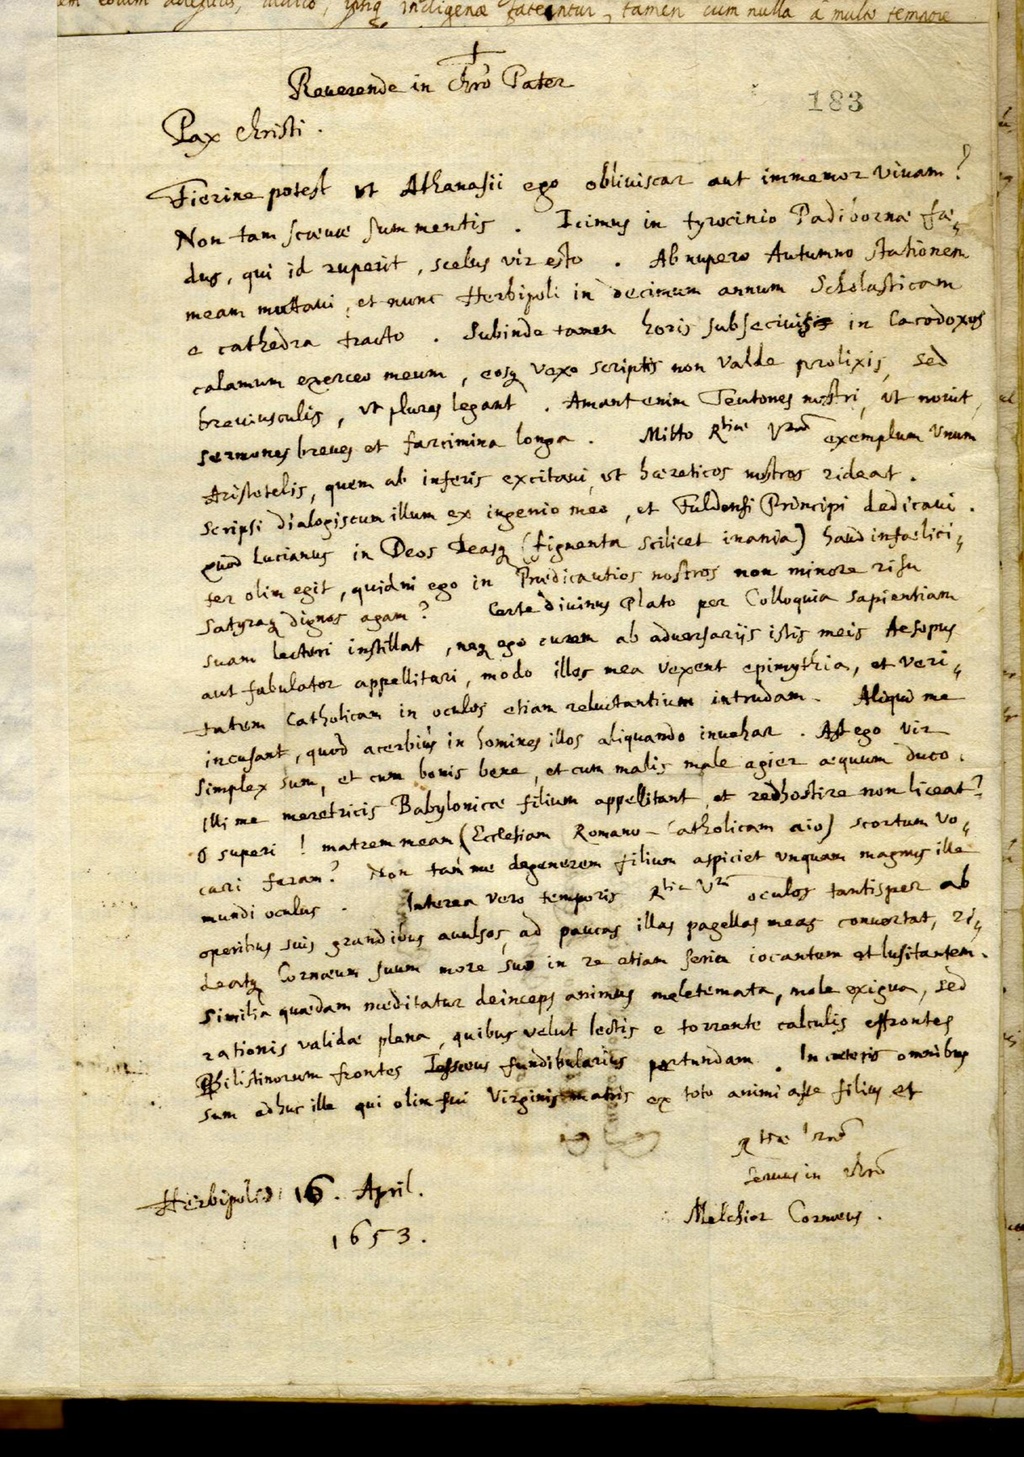 em eorum indigenæ fateantur, tamen cum nulla a multo tempore
Reuerende in Chrō Pater
183
Pax Christi.
Fierine potest ut Athanasii ego obliuiscar aut immemor viuam?
Non tam scæuæ sum mentis. Icimus in tyrocinio Padibornæ fæ„
dus, qui id ruperit, scelus vir esto. Ab nupero Autumno stationem
meam mutaui, et nunc Herbipoli in decimum annum Scholasticam
e cathedra tracto. Subinde tamen horis subseciuis in Cacodoxos
calamum exerceo meum, eosq vexo scriptis non valde prolixis, sed
breuiusculis, ut plures legant. Amant enim Teutones nostri, ut nouit,
sermones breues et farcimina longa. Mitto Rtiae Vrae exemplum vnum
Aristotelis, quem ab inferis excitaui, ut hæreticos nostros rideat.
Scripsi dialogiscum illum ex ingenio meo, et Fuldensi Principi dedicaui.
quod Lucianus in Deos Deasq (figmenta scilicet inania) haud infælici„
ter olim egit, quidni ego in Prædicantios nostros non minore risu
satyraq dignos agam? Certe divinus Plato per Colloquia sapientiam
suam lectori instillat, neq ego curem ab adversarijs istis meis Aesopus
aut fabulator appellitari, modo illos mea vexent epimythia, et veri„
tatem Catholicam in oculos etiam reluctantium intrudam. Aliqui me
incusant, quod acerbius in homines illos aliquando inuehar. Ast ego vir
simplex sum, et cum bonis bene, et cum malis male agier æquum duco.
Illi me meretricis Babylonicæ filium appellitant, et redhostire non liceat?
ô superi! matrem meam (Ecclesiam Romano-Catholicam aio) scortum vo„
cari feram? Non tam me degenerem filium aspiciet unquam magnus ille
mundi oculus. Interea vero temporis Rtia Vra oculos tantisper ab
operibus suis grandibus auulsos, ad paucas illas pagellas meas conuertat, ri„
deatq Cornæum suum more suo in re etiam seria iocantem et lusitantem.
Similia quædam meditatur deinceps animus meletemata, mole exigua, sed
rationis validæ plena, quibus velut lectis e torrente calculis effrontes
Philistinorum frontes Iessæus fundibularius pertundam. In cæteris omnibus
sum adhuc ille qui olim fui Virginis matris ex toto animi asse filius et
Rtiæ Vræ
seruus in Chrō
Herbipoli 16. April.
1653.
Melchior Cornæus.